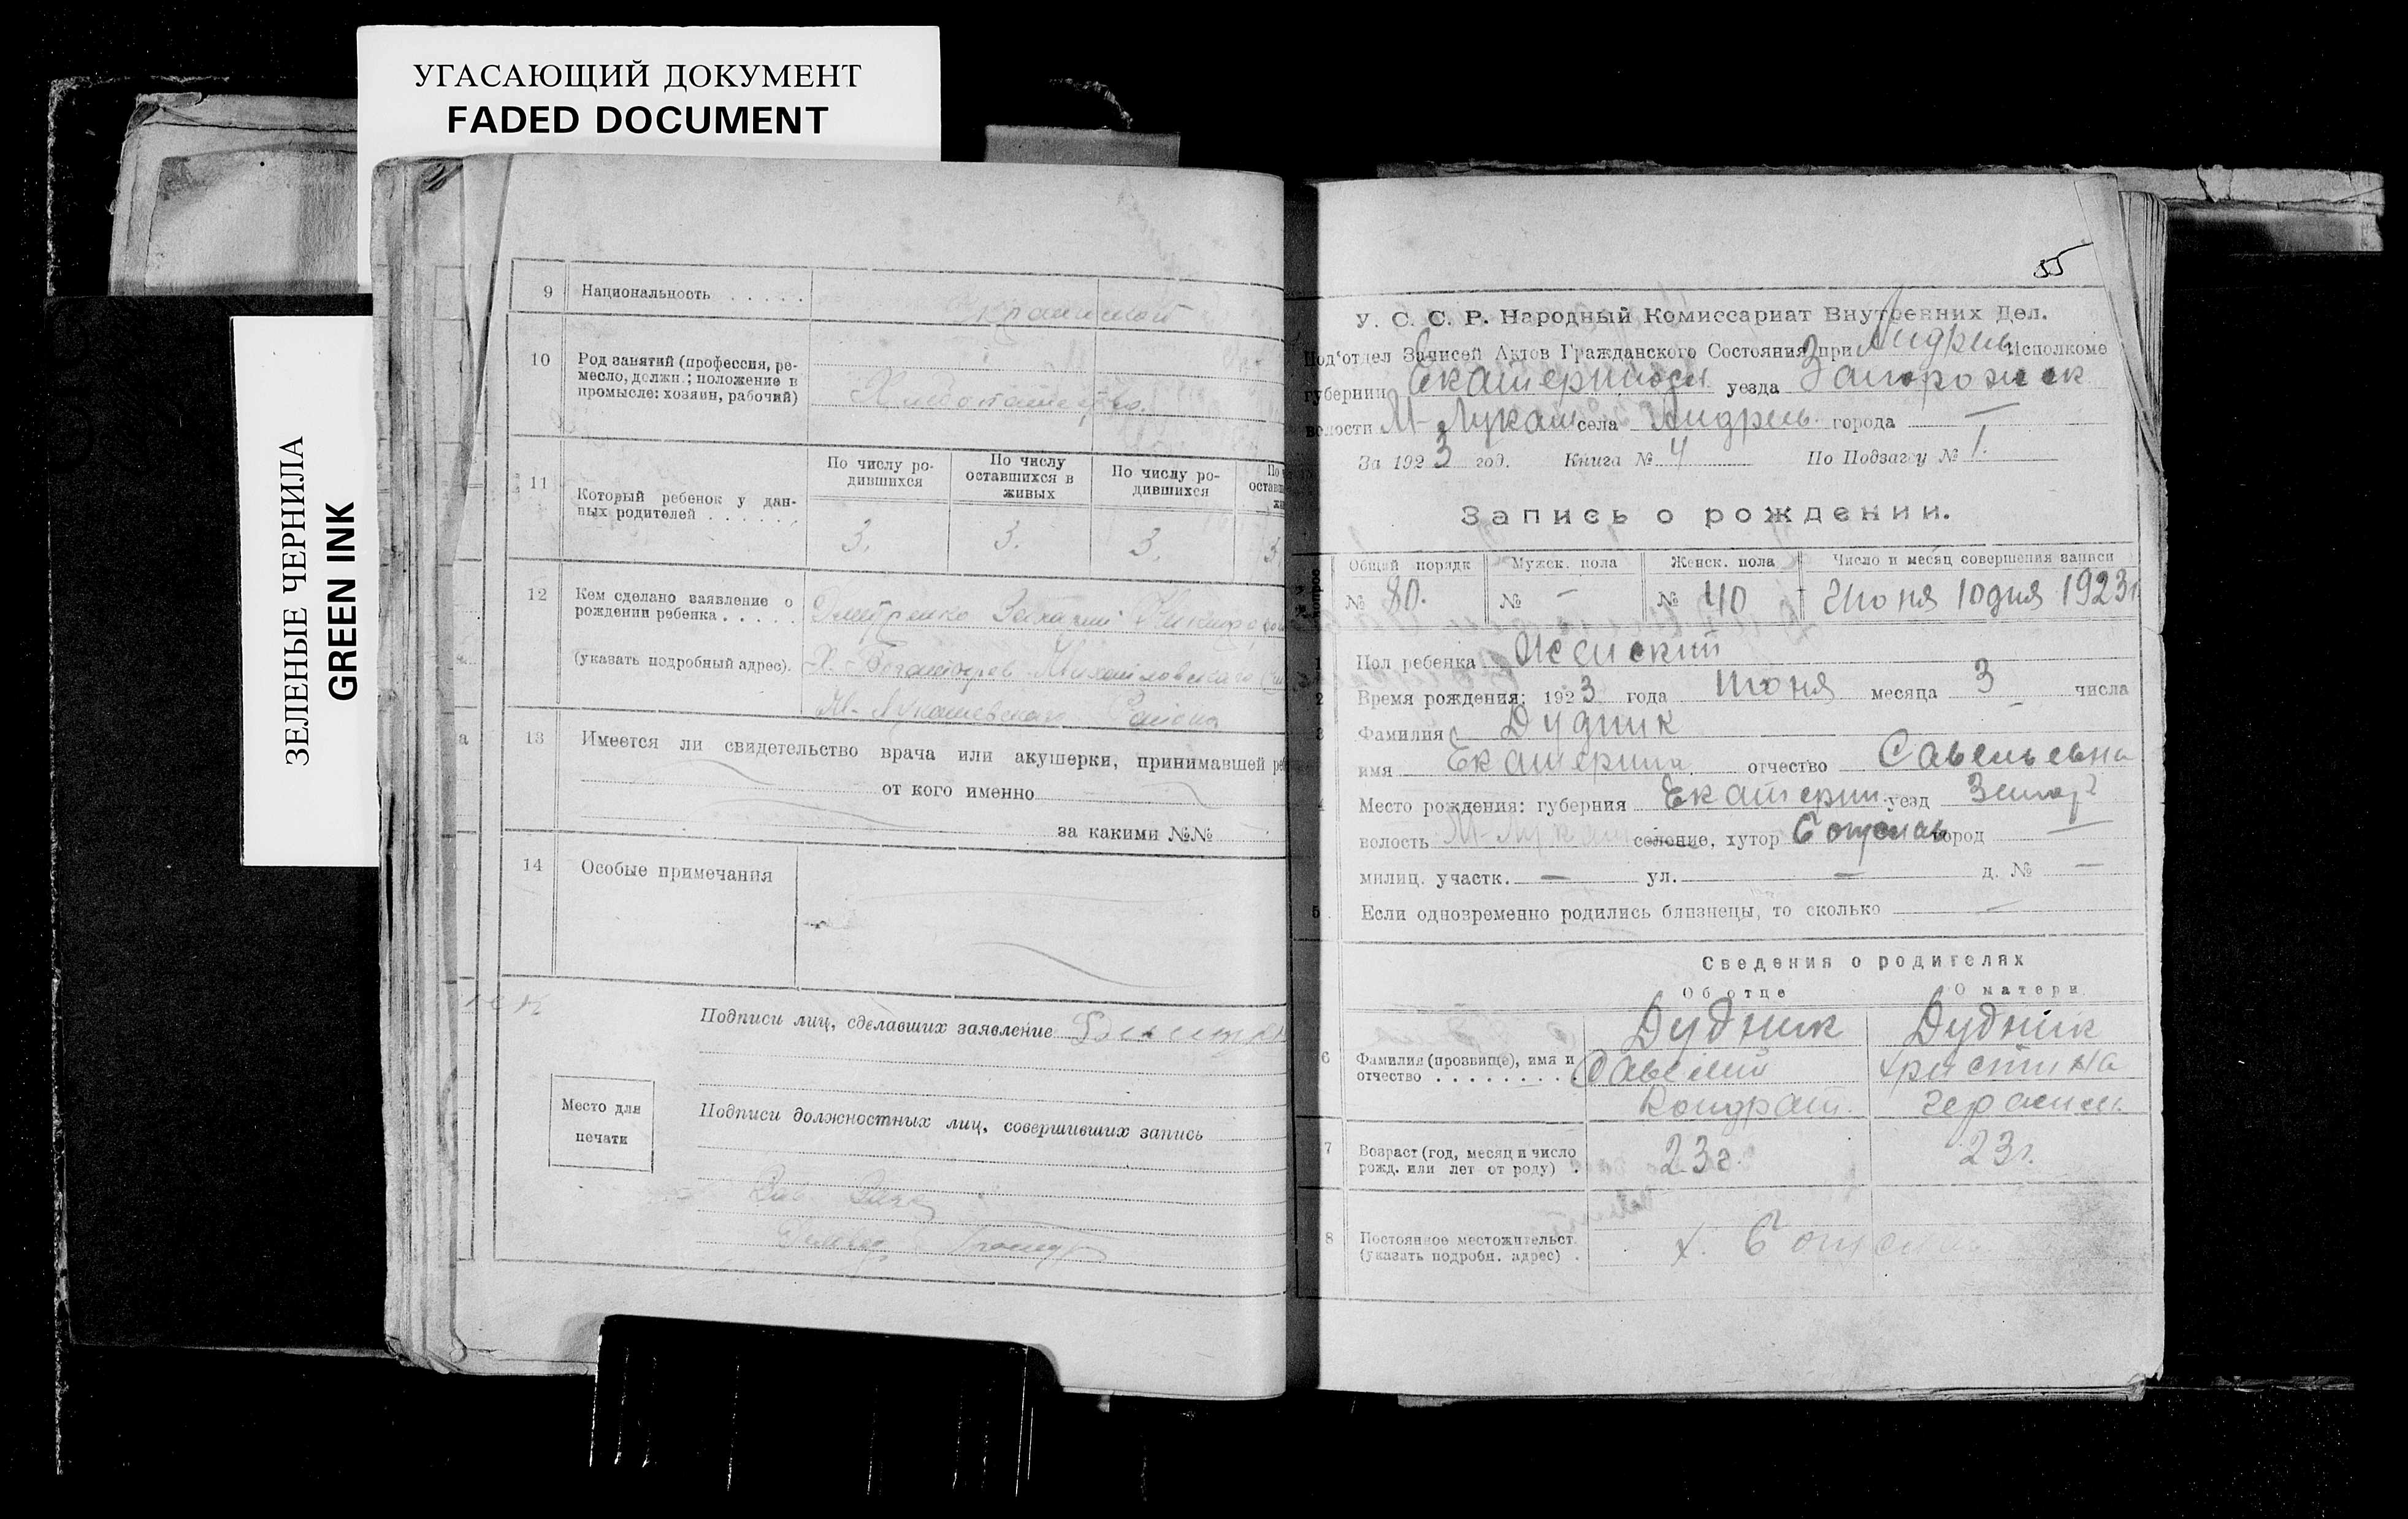 УГАСАЮЩИЙ ДОКУМЕНТ
FADED DOCUMENT
ЗЕЛЕНЫЕ ЧЕРНИЛА
GREEN INK
9 Национальность . . . . .
10 Род занятий (профессия, ре-
месло, должн.; положение в
промысле: хозяин, рабочий)
11 Который ребенок у дан-
ных родителей . . . . . .
По числу ро-
дившихся
По числу
оставшихся в
живых
По числу ро-
дившихся
3. 3. 3. 3
12 Кем сделано заявление о
рождении ребенка . . . . .
Дмитренко Захарий
(указать подробный адрес). Х. Михайловского
М-Лукашевского Района
13 Имеется ли свидетельство врача или акушерки, принимавшей
от кого именно
за какими №№
14 Особые примечания
Подписи лиц, сделавших заявление
Место для
печати
Подписи должностных лиц, совершивших запись
55
У. С. С. Р. Народный Комиссариат Внутренних Дел.
Под'отдел Записей Актов Гражданского Состояния при Андреев Исполкоме
губернии Екатериносл уезда Запорожск
волости М-Лукаш села Андреев. города —
За 1923 год. Книга № 4 По Подзагсу № 1.
Запись о рождении.
Общий порядк Мужск. пола Женск. пола Число и месяц совершения записи
№ 80. № — № 40 Июня 10 дня 1923 г
1 Пол ребенка Женский
2 Время рождения: 1923 года Июня месяца 3 числа
3 Фамилия Дудник
имя Екатерина отчество Савельевна
4 Место рождения: губерния Екатерин. уезд
волость М-Лукаш селение, хутор город —
милиц. участк. — ул. — д. № —
5 Если одновременно родились близнецы, то сколько —
Сведения о родителях
Об отце О матери
6 Фамилия (прозвище), имя и
отчество . . . . . . . .
Дудник Дудник
Савелий Христина
Кондрат. Герасим.
7 Возраст (год, месяц и число
рожд. или лет от роду) .
23 г. 23 г.
8 Постоянное местожительст.
(указать подробн. адрес) .
х.